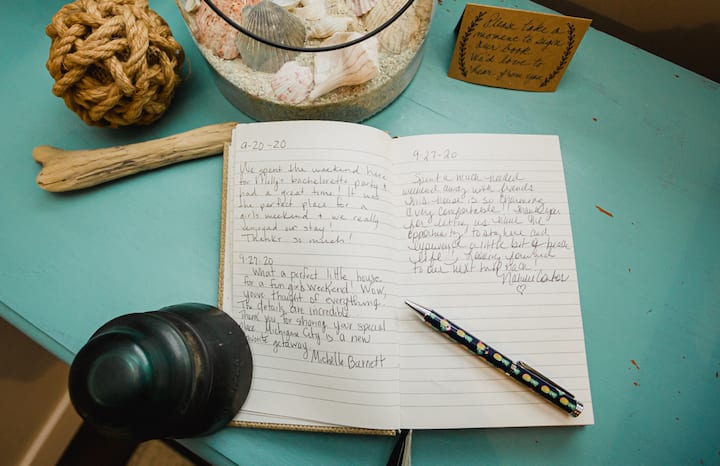 Please take a
moment to sign
our book.
We'd love to
hear from you
9-20-20
We spent the weekend here
for Molly's bachelorette party &
had a great time! It was
the perfect place for a
girls weekend & we really
enjoyed our stay!
Thanks so much!
9-27-20
What a perfect little house
for a fun girls weekend! Wow,
you've thought of everything.
The details are incredible.
Thank you for sharing your special
place. Michigan City is a new
favorite getaway.
Michelle Barnett
9-27-20
Spent a much-needed
weekend away with friends
This house is so charming
& very comfortable! Thank you
for letting us have the
opportunity to stay here and
enjoy a little bit of beach
life! Looking forward
to our next trip back!
Natalie